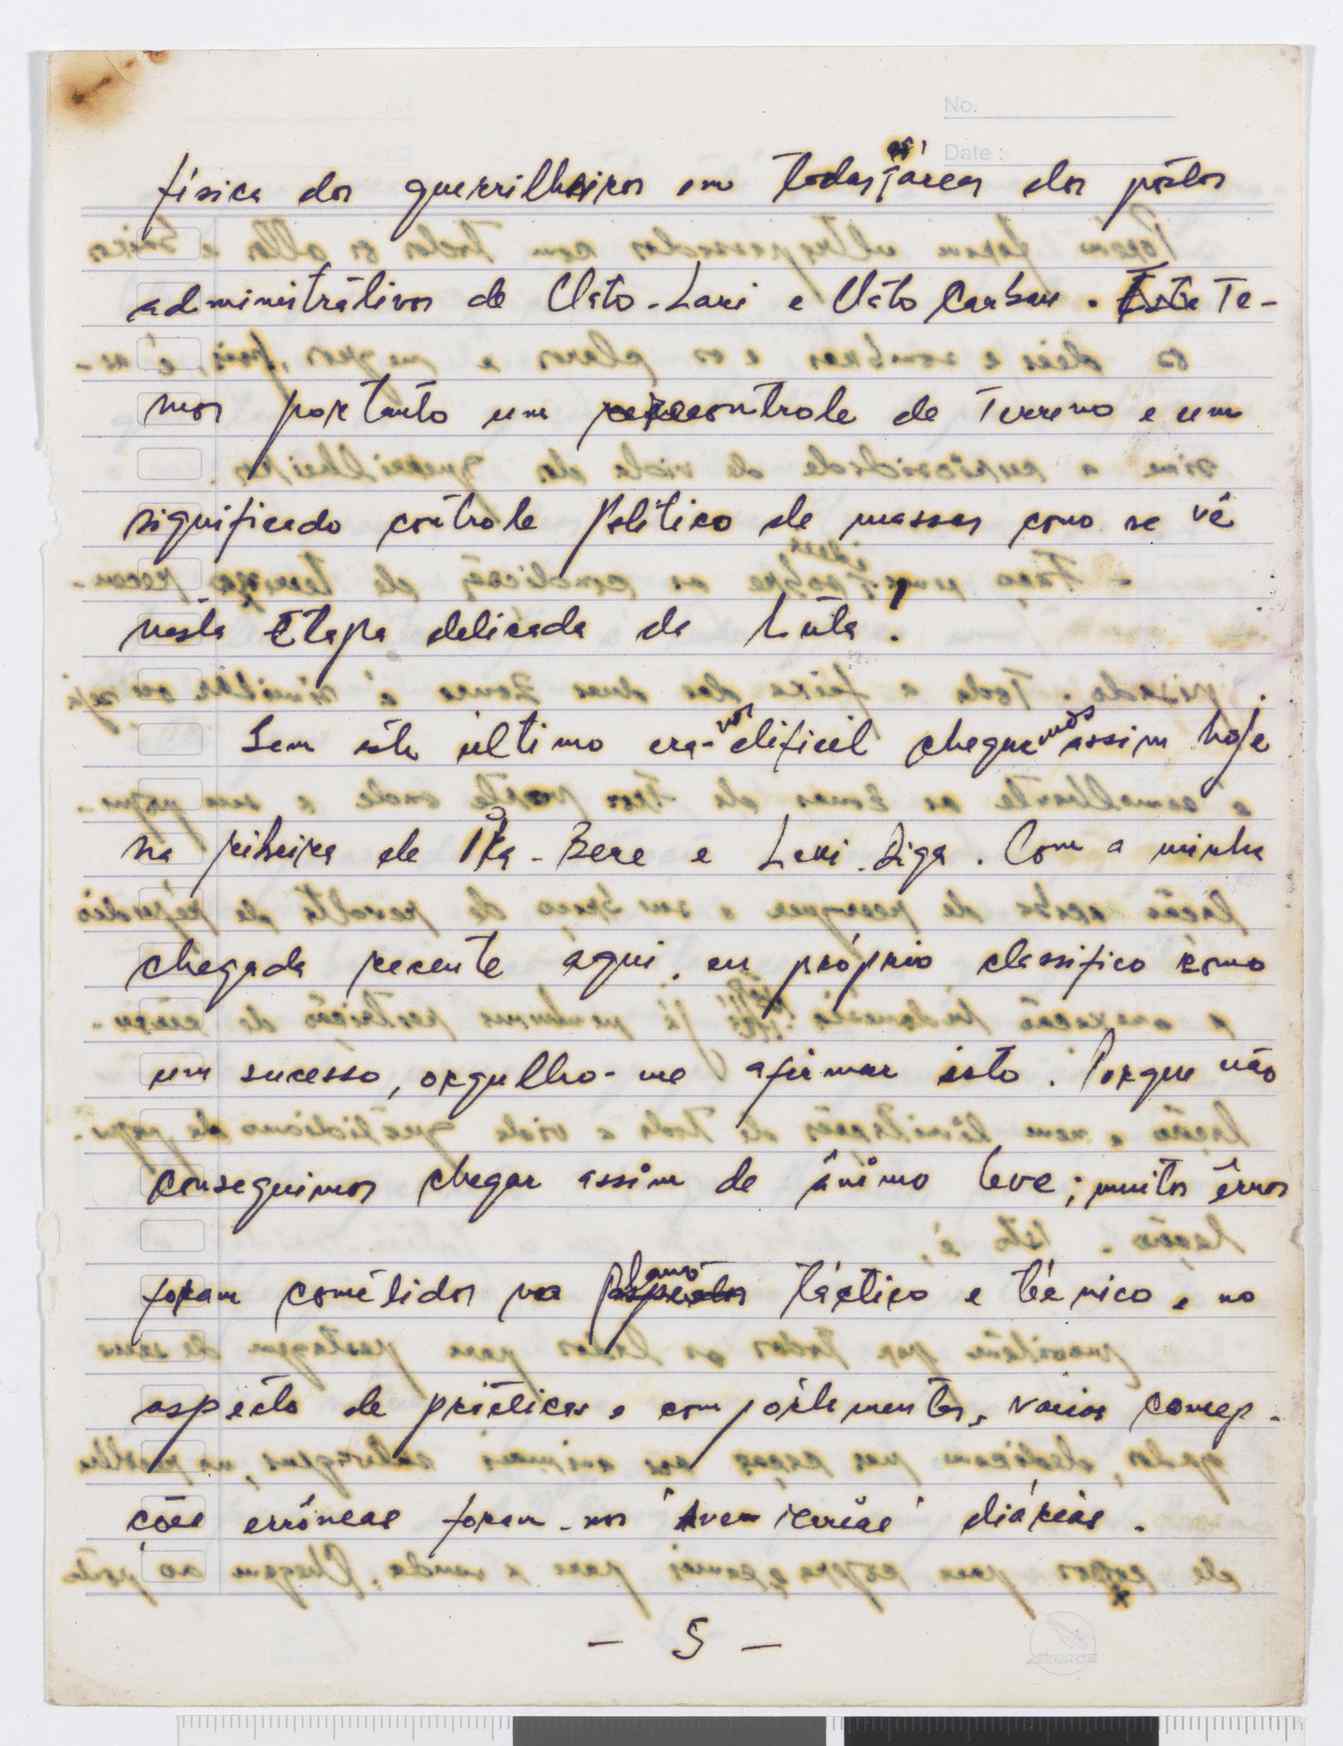 No.
Date :
física dos guerrilheiros em todas as áreas dos postos
administrativos de Uato-Lari e Uato Carbau. Este Te-
mos portanto um controle de terreno e um
significado contrôle Político de massas como se vê
nesta Etapa delicada da Luta.
Sem este último era-nos dificil chegarmos assim hoje
na ribeira de Ira-Bere e Lari-Diga. Com a minha
chegada recente aqui, eu próprio classifico como
um sucesso, orgulho-me afirmar isto. Porque não
conseguimos chegar assim de ânimo leve; muitos êrros
foram cometidos no plano táctico e técnico e no
aspecto de práticas e comportamentos, várias concep-
ções errôneas foram-nos diárias.
- 5 -